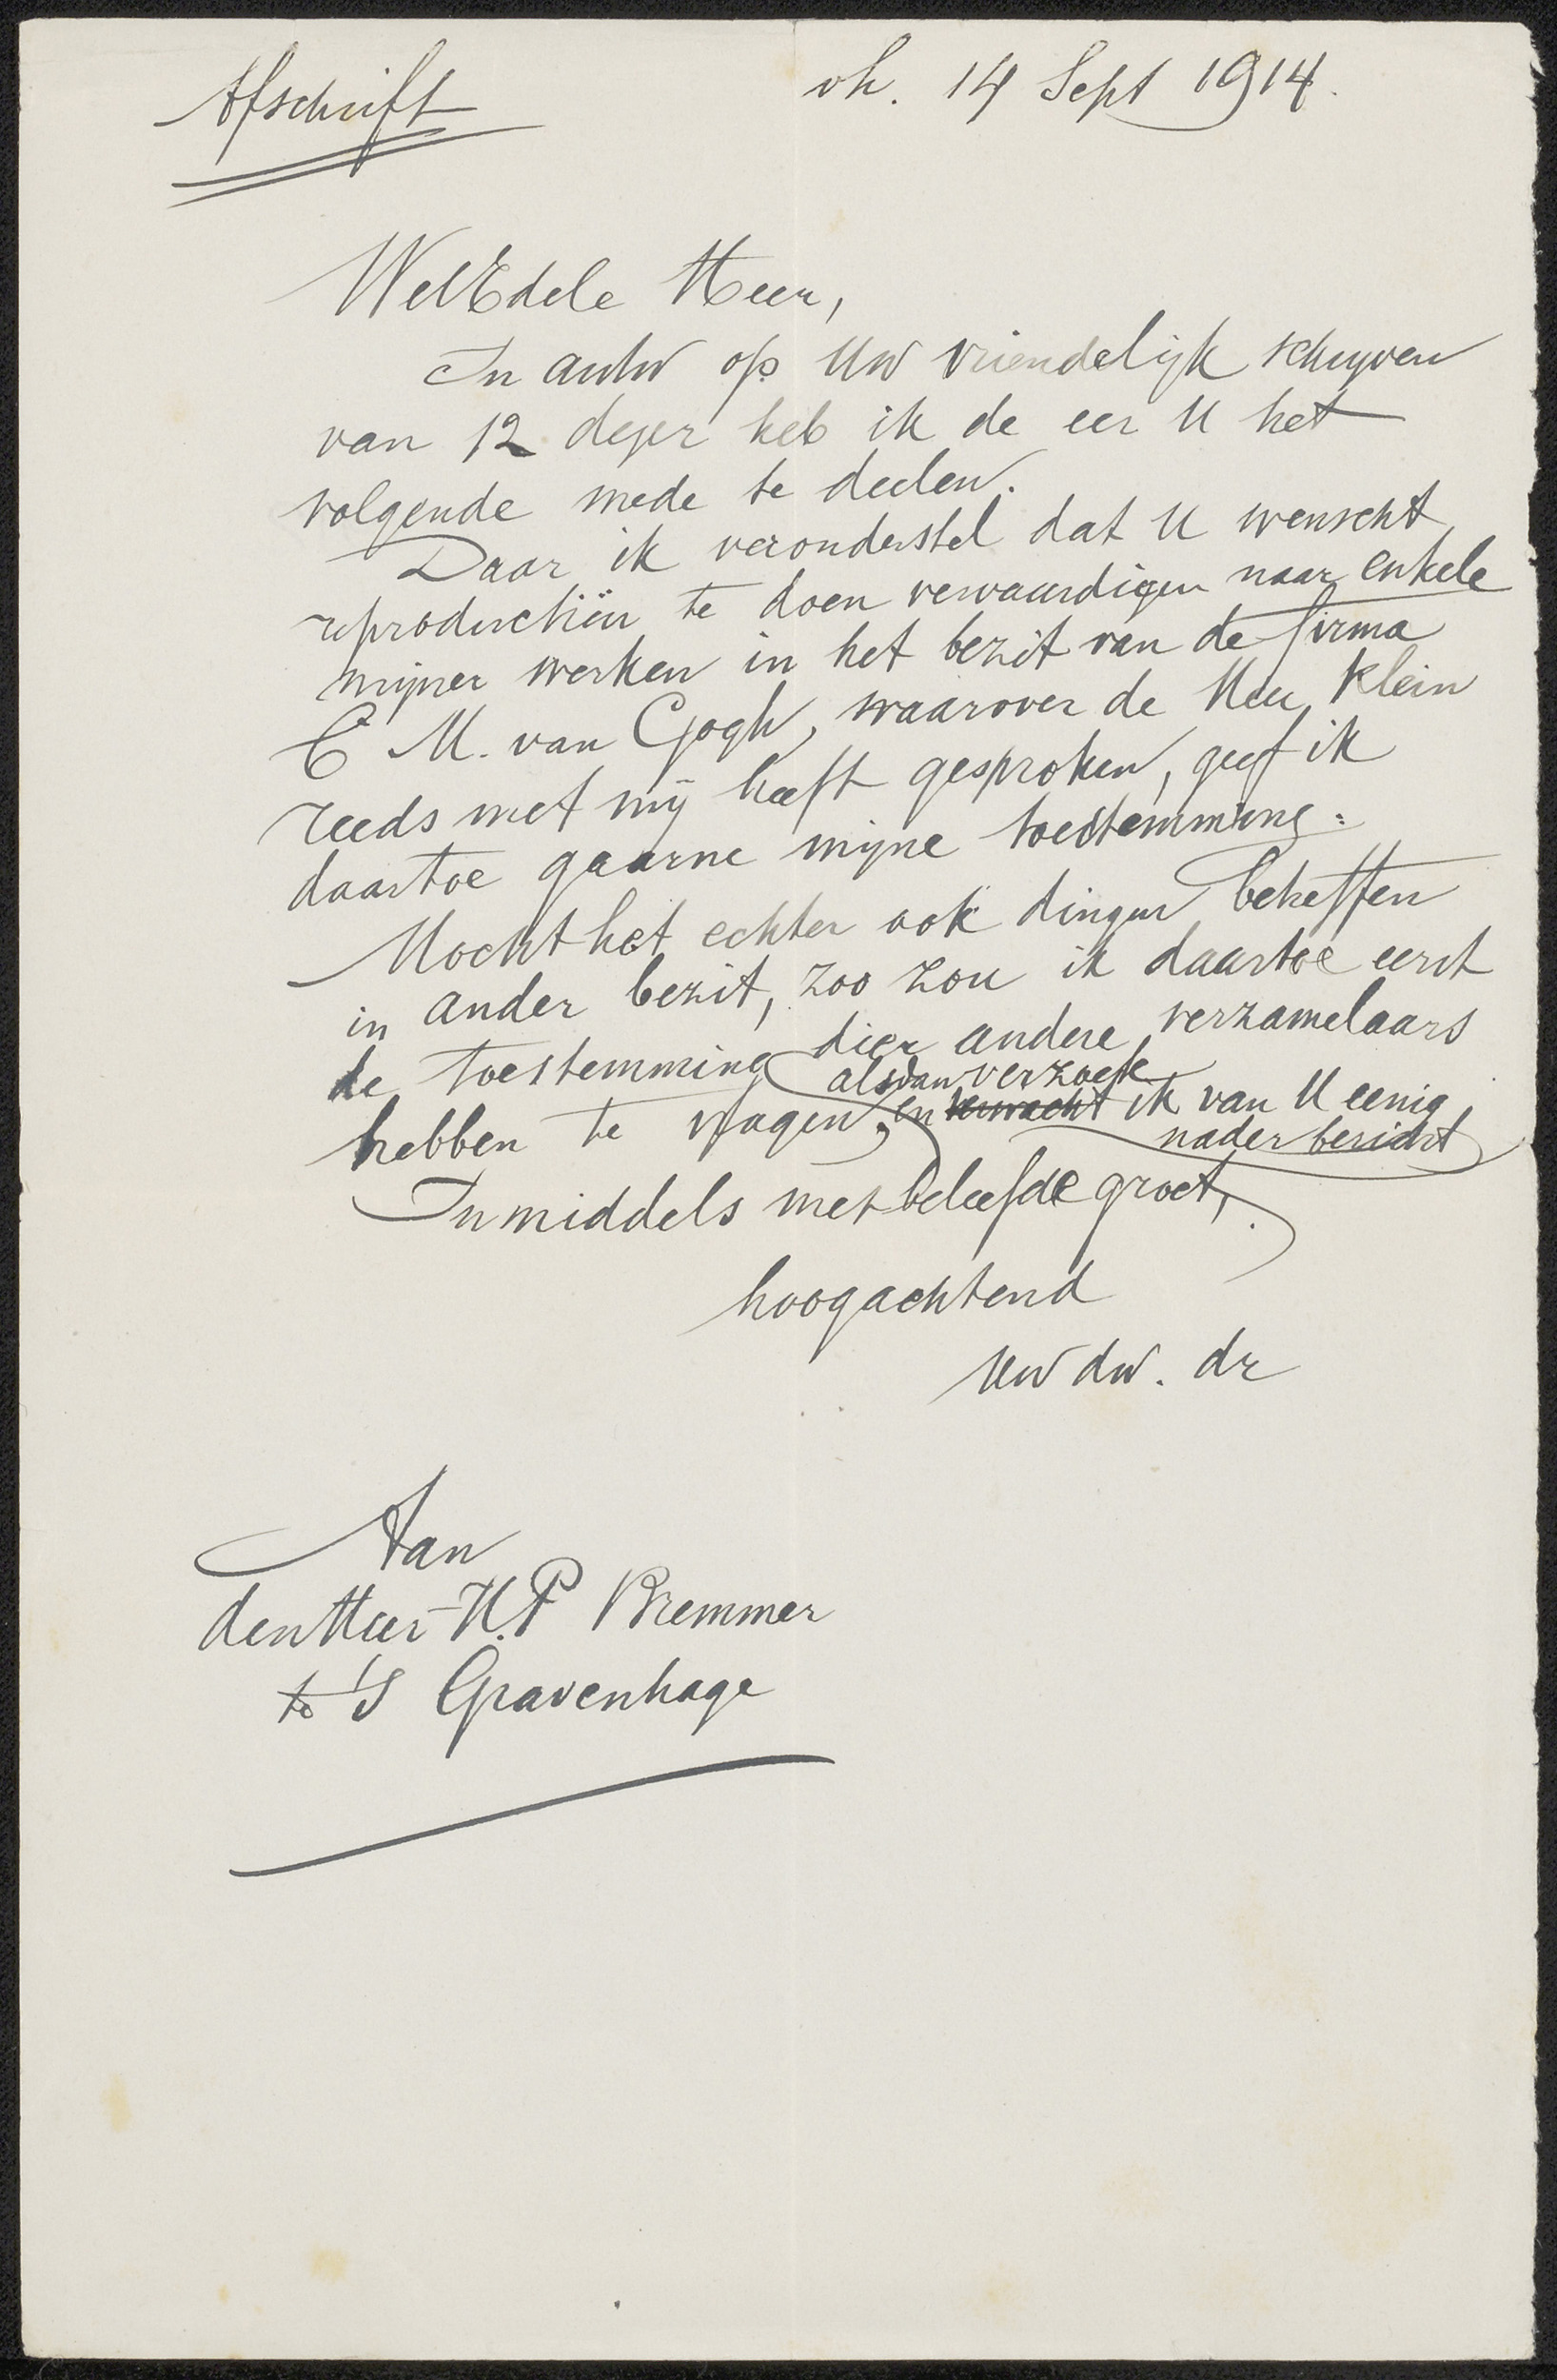 Afschrift
vh. 14 Sept 1914.
WelEdele Heer,
In antw op Uw vriendelijk schrijven
van 12 dezer heb ik de eer U het
volgende mede te deelen.
Daar ik veronderstel dat U wenscht
reproductiën te doen vervaardigen naar enkele
mijner werken in het bezit van de firma
C M. van Gogh, waarover de Heer Klein
reeds met mij heeft gesproken, geef ik
daartoe gaarne mijne toestemming.
Mocht het echter ook dingen betreffen
in ander bezit, zoo zou ik daartoe eerst
de toestemming dier andere verzamelaars
alsdan verzoek
hebben te vragen, en verwacht ik van U eenig
nader bericht
Inmiddels met beleefde groet,
hoogachtend
Uw dw. dr
Aan
den Heer H.P Bremmer
te 'S Gravenhage